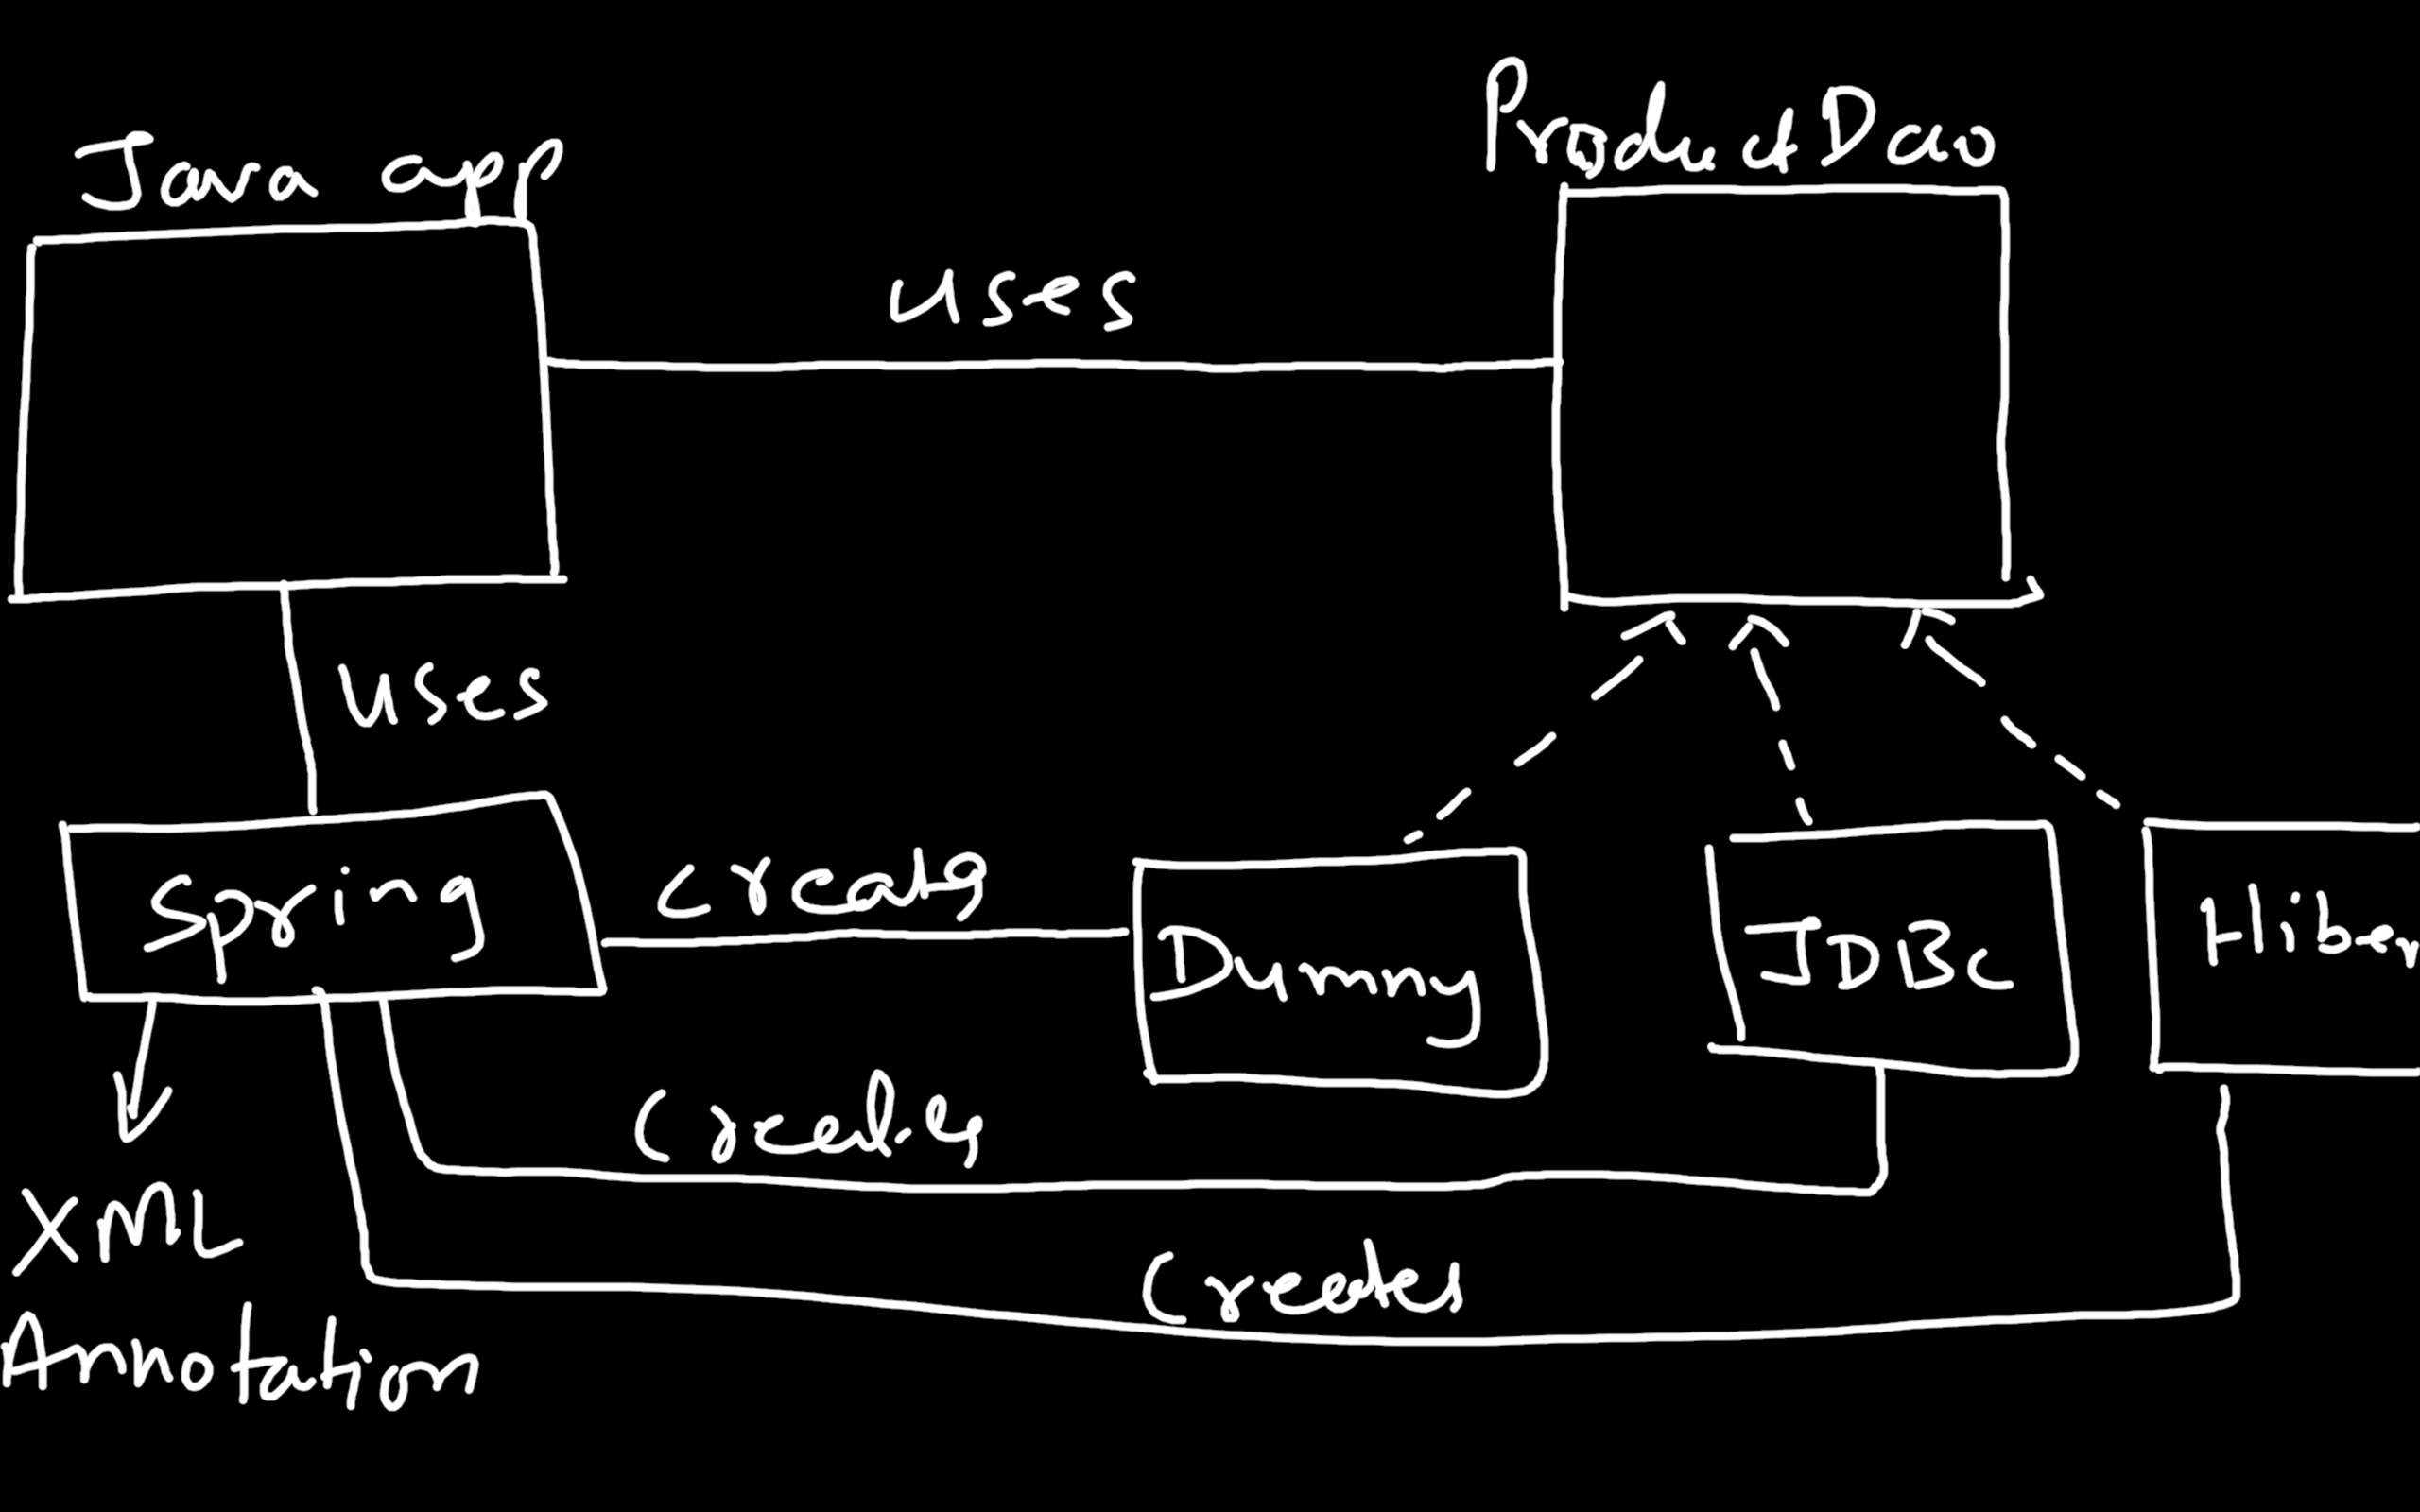 Java app
ProductDao
uses
uses
Spring
creates
Dummy
JDBC
Hiber
Creates
Creates
XML
Annotation